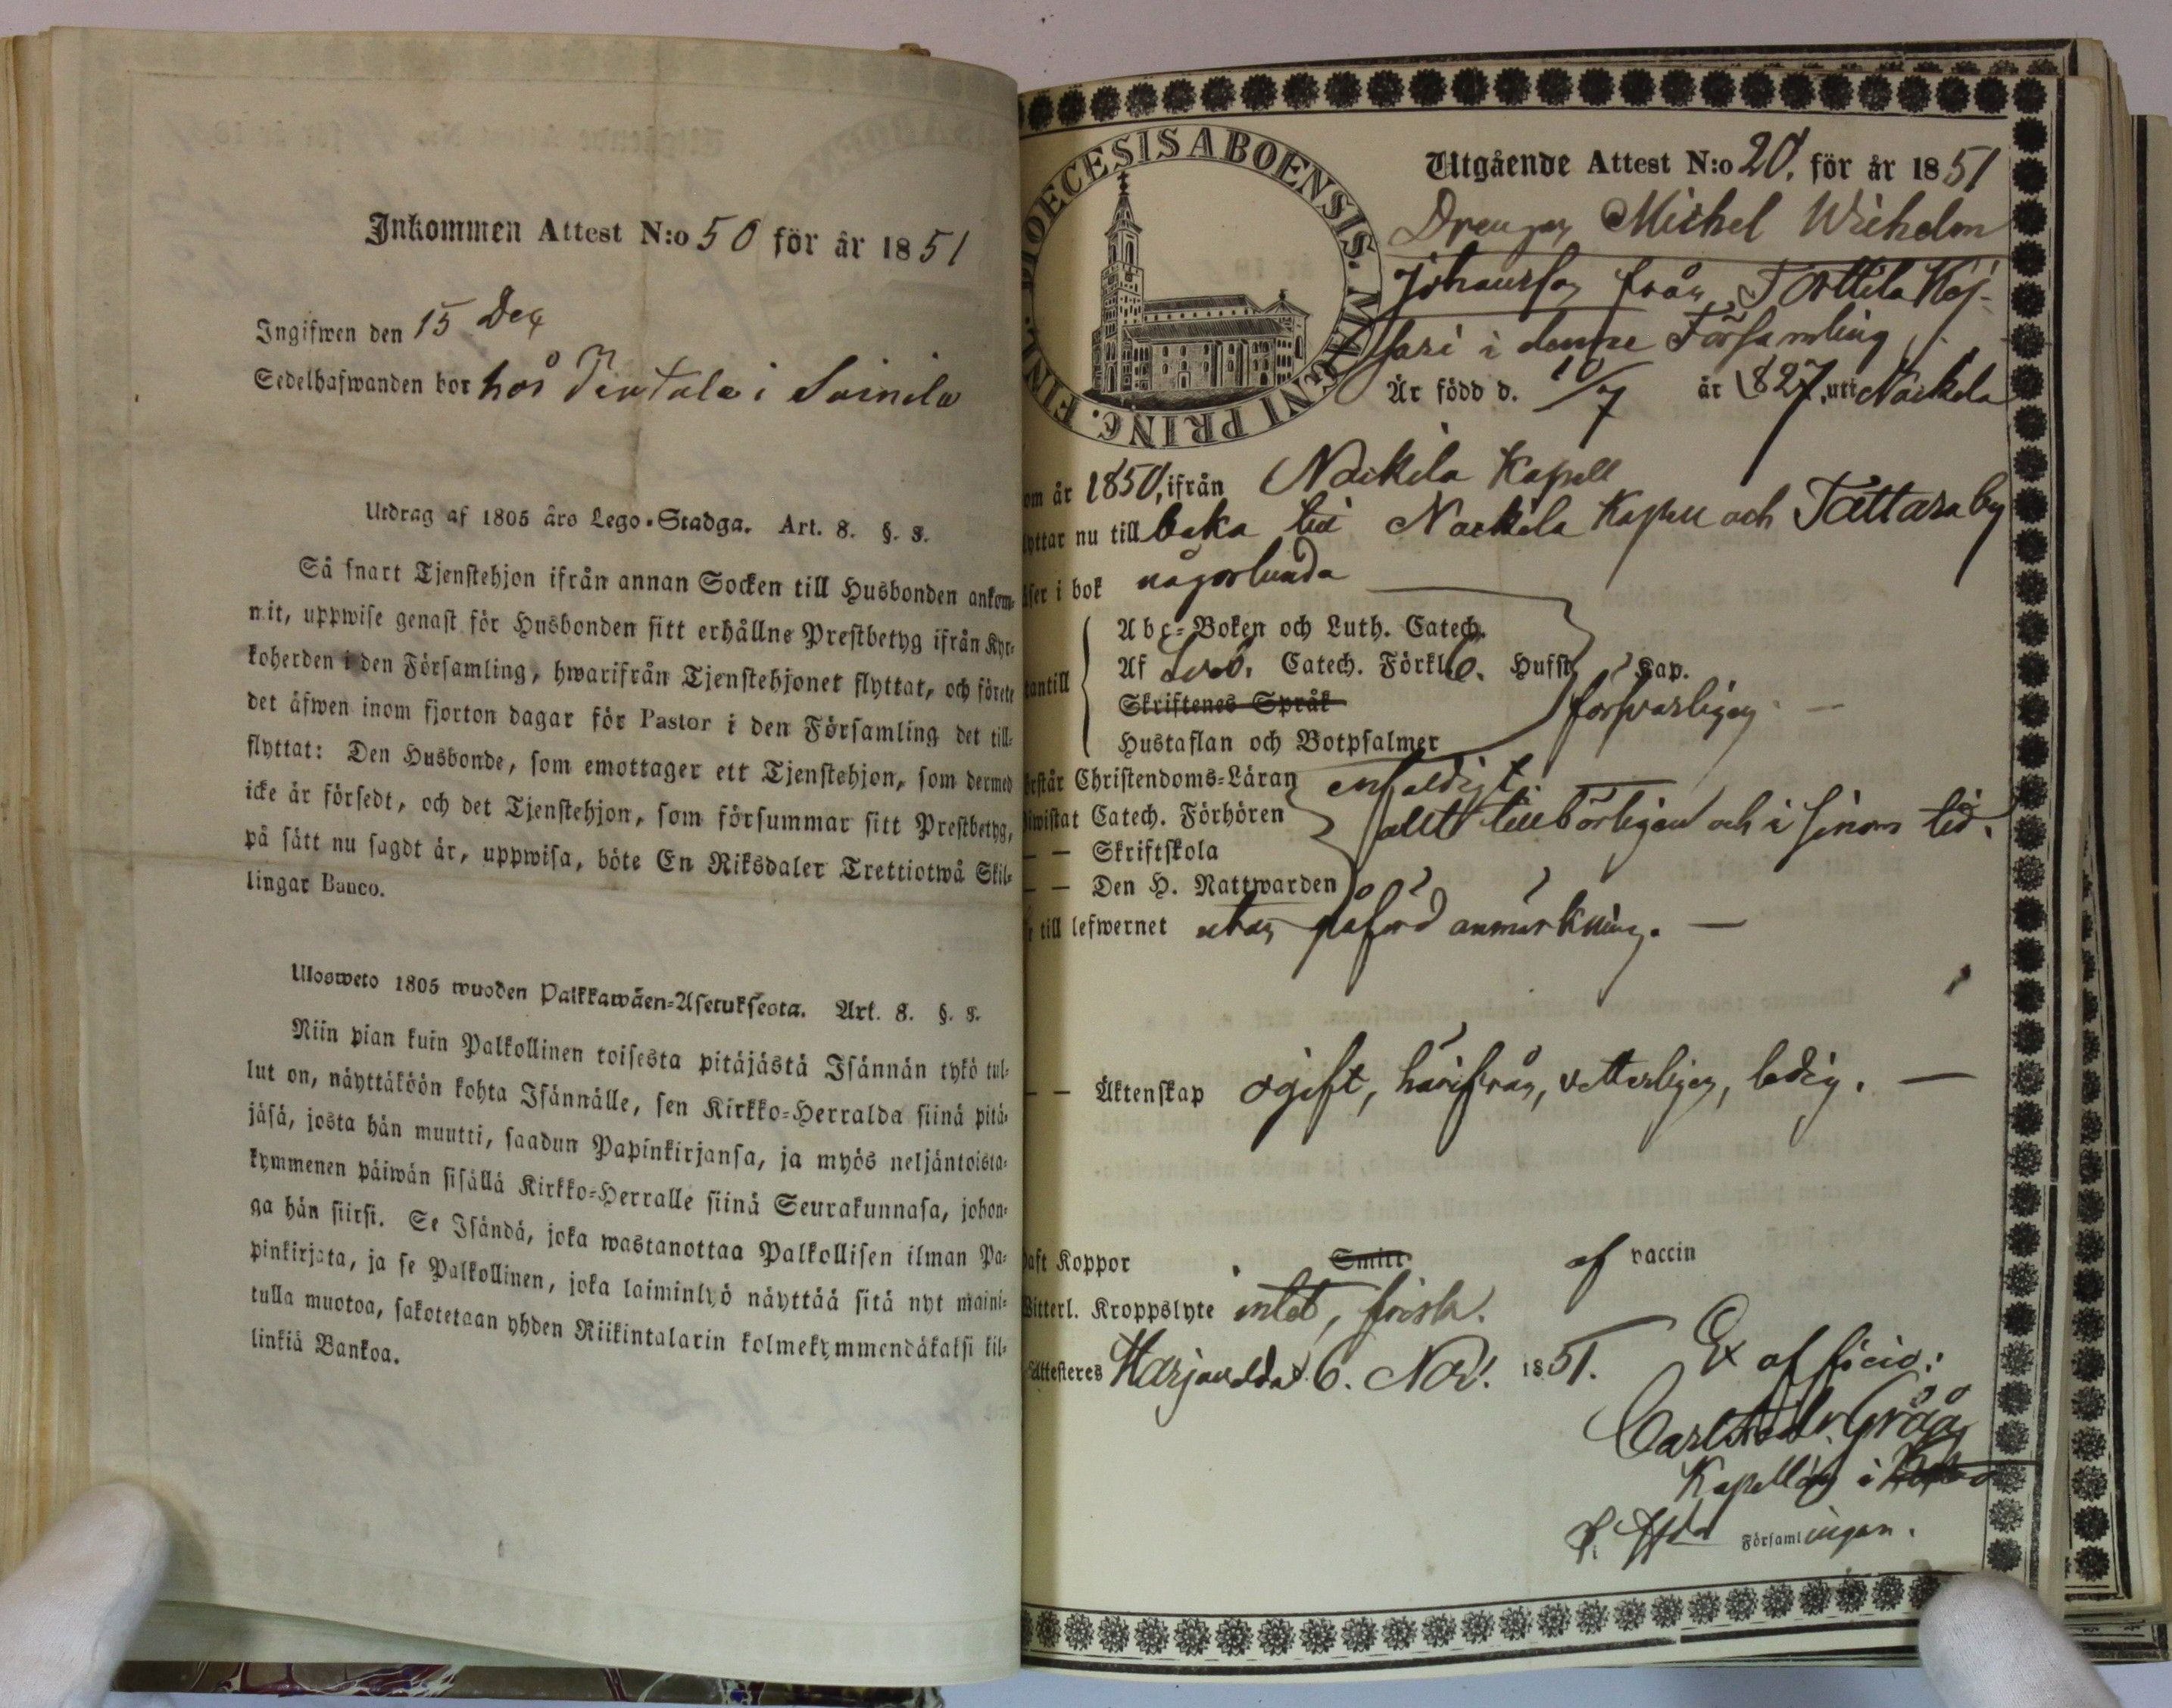 Inkommen Attest N:o 50 för år 1851
Ingifwen den 15 Dec
Sedelhafwanden bor hos i Suinila
Utdrag af 1805 års Lego-Stadga. Art. 8. §. 8.
Så snart Tjenstehjon ifrån annan Socken till Husbonden ankom-
mit, uppwise genast för Husbonden sitt erhållne Prestbetyg ifrån Kyr-
koherden i den Församling, hwarifrån Tjenstehjonet flyttat, och förete
det äfwen inom fjorton dagar för Pastor i den Församling det till-
flyttat: Den Husbonde, som emottager ett Tjenstehjon, som dermed
icke är försedt, och det Tjenstehjon, som försummar sitt Prestbetyg,
på sätt nu sagdt är, uppwisa, böte En Riksdaler Trettiotwå Skil-
lingar Banco.
Ulosweto 1805 wuoden Palkkawäen-Asetuksesta. Art. 8. §. 8.
Niin pian kuin Palkollinen toisesta pitäjästä Isännän tykö tul-
lut on, näyttäköön kohta Isännälle, sen Kirkko-Herralda siinä pitä-
jäsä, josta hän muutti, saadun Papinkirjansa, ja myös neljäntoista-
kymmenen päiwän sisällä Kirkko-Herralle siinä Seurakunnasa, johon-
ga hän siirsi. Se Isändä, joka wastanottaa Palkollisen ilman Pa-
pinkirjata, ja se Palkollinen, joka laiminlyö näyttää sitä nyt maini-
tulla muotoa, sakotetaan yhden Riikintalarin kolmekymmendäkaksi kil-
linkiä Bankoa.
DIOECESIS ABOENSIS. MAGNI PRINC. FINL.
Utgående Attest N:o 20. för år 1851
Drengen Michel Wilhelm
Johansson från Torttila Koj-
sari i denne Församling
Är född d. 10/7 år 1827, uti Nackila
om år 1850, ifrån Nackila Kapell
lyttar nu till baka till Nackila Kapell och Tattara by
äser i bok någorlunda
utantill
Abc-Boken och Luth. Catech.
Af Sveb. Catech. Förkl. 6. Hufst. Kap.
Skriftenes Språk
försvarligen. —
Hustaflan och Botpsalmer
örstår Christendoms-Läran enfaldigt.
iwistat Catech. Förhören
allt tillbörligen och i sinom tid.
— — Skriftskola
— — Den H. Nattwarden
till lefwernet utan påförd anmärkning. —
— — Äktenskap ogift, härifrån, vetterligen, ledig. —
haft Koppor Smitt af vaccin
Witterl. Kroppslyte intet, frisk.
Attesteres Harjavalda d. 6. Nov. 1851. Ex officio:
Carl Fredr. Gråå
Kapellan i
Församlingen.